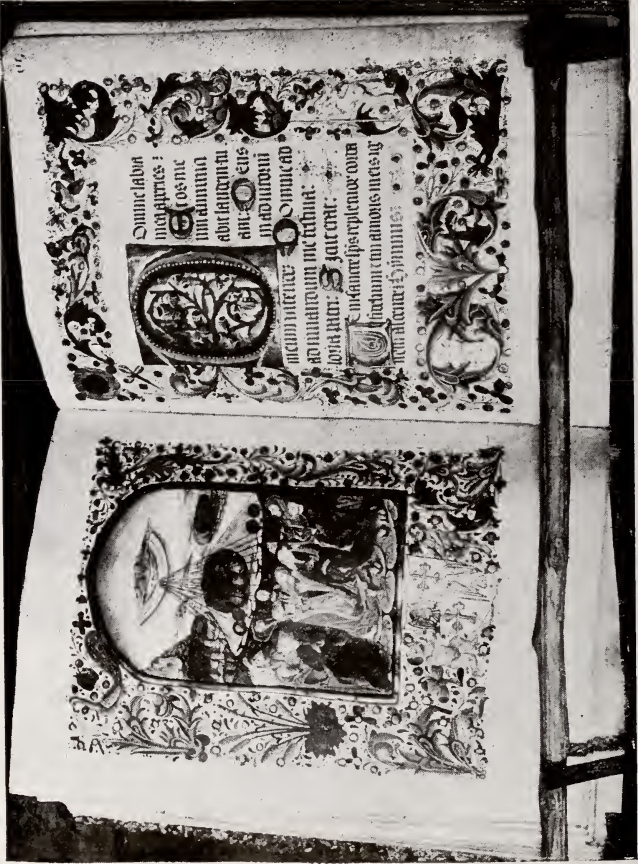 Domine labia
mea aperies :
Et os me
um anunci
abit laudem tu
am: Deus
in adiutoriu
meum intende: Domine ad
adiuuandum me festina:
loria patri: Sicut erat:
sancte sps reple tuor corda
fidelium et tui amoris in eis ig
nem accende Hymnus: